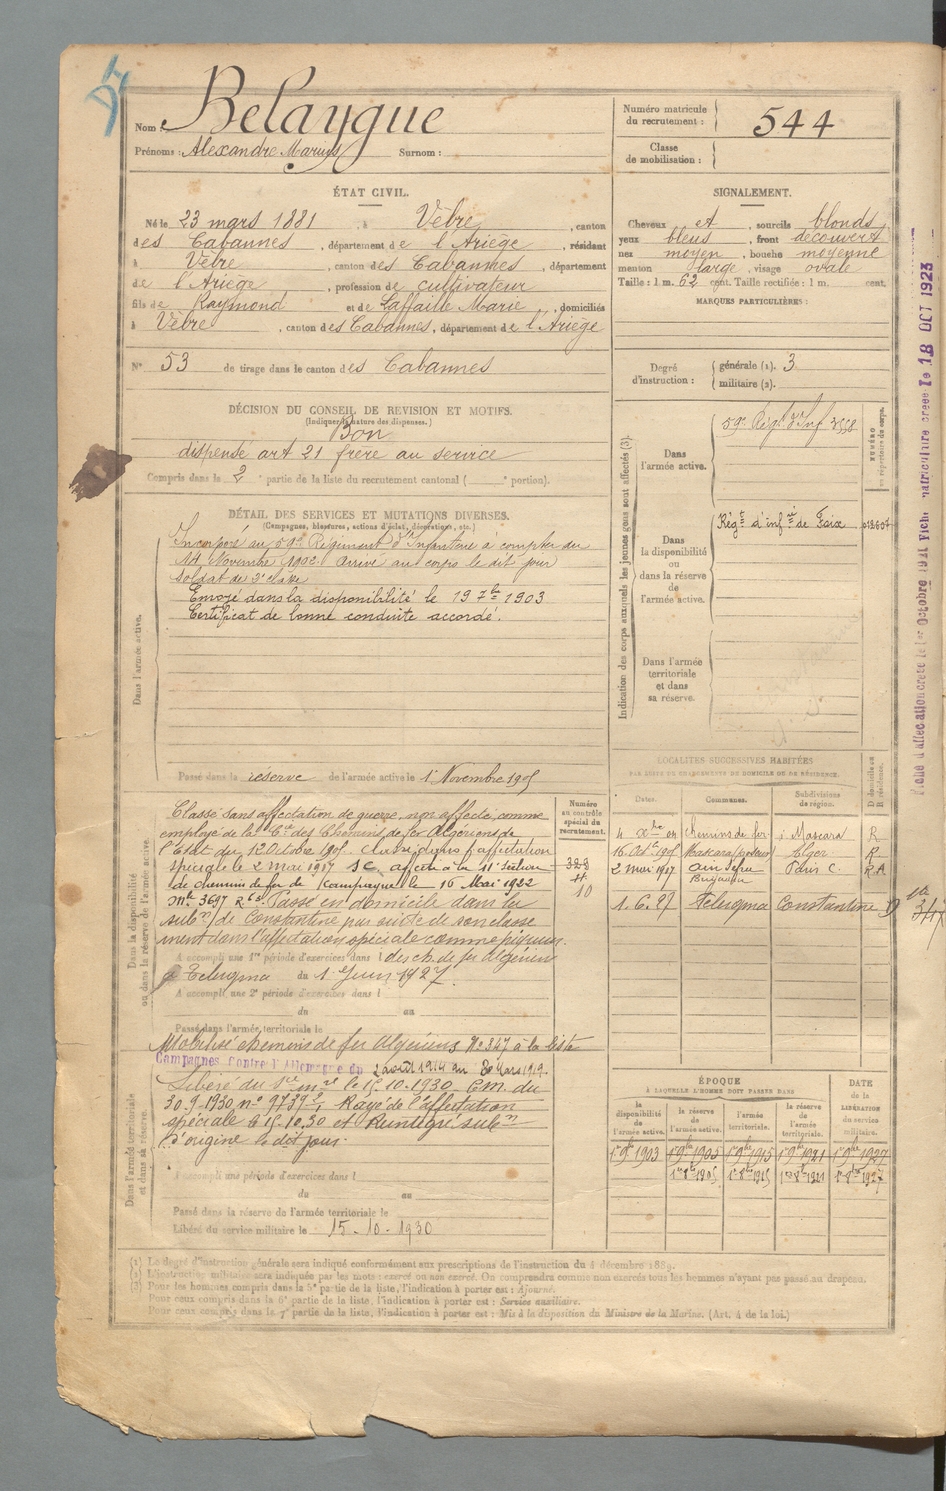 Nom : Bélaygue
Prénoms : Alexandre Marius Surnom :
Numéro matricule du recrutement : 544
Classe de mobilisation :
ÉTAT CIVIL.
Né le 23 mars 1881, à Vèbre, canton
des Cabannes, département de l'Ariège, résidant
à Vèbre, canton des Cabannes, département
de l'Ariège, profession de cultivateur
fils de Raymond et de Laffaille Marie, domiciliés
à Vèbre, canton des Cabannes, département de l'Ariège
N° 53 de tirage dans le canton des Cabannes
SIGNALEMENT.
Cheveux et sourcils blonds
yeux bleus, front découvert
nez moyen, bouche moyenne
menton large, visage ovale
Taille : 1 m. 62 cent. Taille rectifiée : 1 m. cent.
MARQUES PARTICULIÈRES :
Degré d'instruction : générale (1). 3
militaire (2).
DÉCISION DU CONSEIL DE REVISION ET MOTIFS.
(Indiquer la nature des dispenses.)
Bon
dispensé art 21 frère au service
Compris dans la 2e partie de la liste du recrutement cantonal ( e portion).
DÉTAIL DES SERVICES ET MUTATIONS DIVERSES.
(Campagnes, blessures, actions d'éclat, décorations, etc.)
Dans l'armée active.
Incorporé au 59e Régiment d'Infanterie à compter du
14 Novembre 1902. Arrivé au corps le dit jour
soldat de 2e classe
Envoyé dans la disponibilité le 19 7bre 1903
Certificat de bonne conduite accordé.
Passé dans la réserve de l'armée active le 1er Novembre 1905
Indication des corps auxquels les jeunes gens sont affectés (3).
NUMÉRO au répertoire du corps.
Dans l'armée active. 59e Régt d'Inf 3558
Dans la disponibilité ou dans la réserve de l'armée active. Régt d'infrie de Foix 012607
Dans l'armée territoriale et dans sa réserve.
Fiche d'affectation créée le 1er Octobre 1921 Fiche matriculaire créée le 18 OCT 1923
Dans la disponibilité ou dans la réserve de l'armée active.
Classé sans affectation de guerre, non affecté, comme
employé de la Cie des Chemins de fer Algériens de
l'État du 12 Octobre 1905. Classé dans l'affectation
spéciale le 2 mai 1907 SC affecté à la 11e Section
de chemins de fer de Campagne le 16 Mai 1922
Passé en domicile dans la
subon de Constantine par suite de son classe
ment dans l'affectation spéciale comme piqueur
des ch. de fer Algérien
à Telergma du 1er Juin 1927.
A accompli une 1re période d'exercices dans l
A accompli une 2e période d'exercices dans l
du au
Passé dans l'armée territoriale le
Numéro au contrôle spécial du recrutement.
323
10
LOCALITÉS SUCCESSIVES HABITÉES
PAR SUITE DE CHANGEMENTS DE DOMICILE OU DE RÉSIDENCE.
Dates. Communes. Subdivisions de région. D domicile ou R résidence.
4 Xbre 04 Chemins de fer Mascara R
16 Octbre 1905 Mascara Alger R
2 mai 1907 Ain Sefra Paris C. RA
1. 6. 27 Telergma Constantine D
347
Dans l'armée territoriale et dans sa réserve.
Mobilisé chemins de fer Algériens N° 347 à la liste
Campagnes contre l'Allemagne du 2 août 1914 au 8 Mars 1919.
Libéré du Sce mre le 15-10-1930. E.M. du
30-9-1930 n° 9739. Rayé de l'affectation
spéciale le 15.10.30 et Réintégré subon
d'origine le dit jour.
A accompli une période d'exercices dans l
du au
Passé dans la réserve de l'armée territoriale le
Libéré du service militaire le 15-10-1930
ÉPOQUE
À LAQUELLE L'HOMME DOIT PASSER DANS
DATE de la LIBÉRATION du service militaire.
la disponibilité de l'armée active. la réserve de l'armée active. l'armée territoriale. la réserve de l'armée territoriale.
1er 9bre 1903 1er 9bre 1905 1er 9bre 1915 1er 9bre 1921 1er 9bre 1927
1er 8bre 1905 1er 8bre 1915 1er 8bre 1921 1er 8bre 1927
(1) Le degré d'instruction générale sera indiqué conformément aux prescriptions de l'instruction du 4 décembre 1889.
(2) L'instruction militaire sera indiquée par les mots : exercé ou non exercé. On comprendra comme non exercés tous les hommes n'ayant pas passé au drapeau.
(3) Pour les hommes compris dans la 5e partie de la liste, l'indication à porter est : Ajourné.
Pour ceux compris dans la 6e partie de la liste, l'indication à porter est : Service auxiliaire.
Pour ceux compris dans la 7e partie de la liste, l'indication à porter est : Mis à la disposition du Ministre de la Marine. (Art. 4 de la loi.)